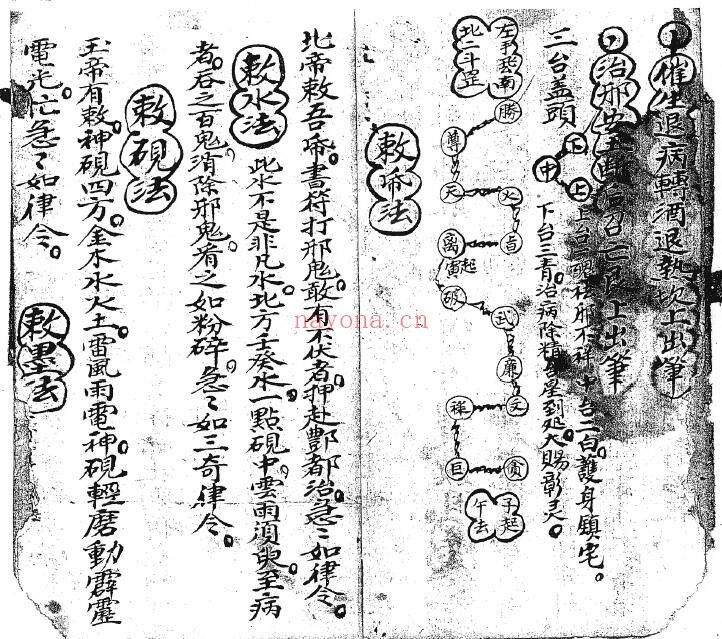 催生退病轉酒退熱坎上出筆
治邪安五斷瘟召亡艮上出筆
三台盖頭
上
中
上台一魄祛邪不祥中台二白護身鎮宅。
下台三青治病除精生星到处大賜彰灵。
左手癸南
北二斗罡
勝
尊
天
火
貞
离
寅起
破
武
廉
文
祿
巨
貪
子起
午去
敕帋法
北帝敕吾帋。書符打邪鬼。敢有不伏者。押赴酆都治。急〻如律令。
敕水法
此水不是非凡水。北方壬癸水。一點硯中。雲雨須臾至。病
者吞之百鬼消除。邪鬼肴之如粉碎。急〻如三奇律令。
敕硯法
玉帝有敕。神硯四方。金木水火土。雷風雨電。神硯輕磨。動霹靂
電光忙。急〻如律令。
敕墨法
nayona.cn